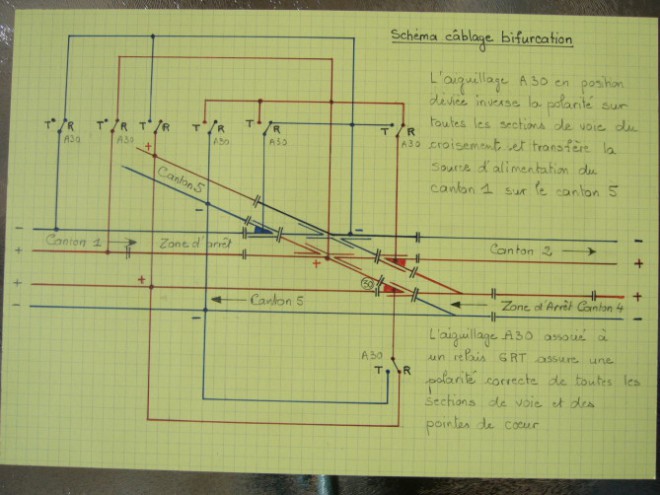 Schéma câblage bifurcation
L'aiguillage A30 en position
déviée inverse la polarité sur
toutes les sections de voie du
croisement et transfère la
source d'alimentation du
canton 1 sur le canton 5
T R T R T R T R T R T R
A30 A30 A30 A30 A30
+
Canton 5
-
- - -
Canton 1 Zone d'arrêt Canton 2
+ + +
+ 30 +
Canton 5 Zone d'Arrêt Canton 4
- - -
A30
T R
L'aiguillage A30 associé à
un relais GRT assure une
polarité correcte de toutes les
sections de voie et des
pointes de cœur